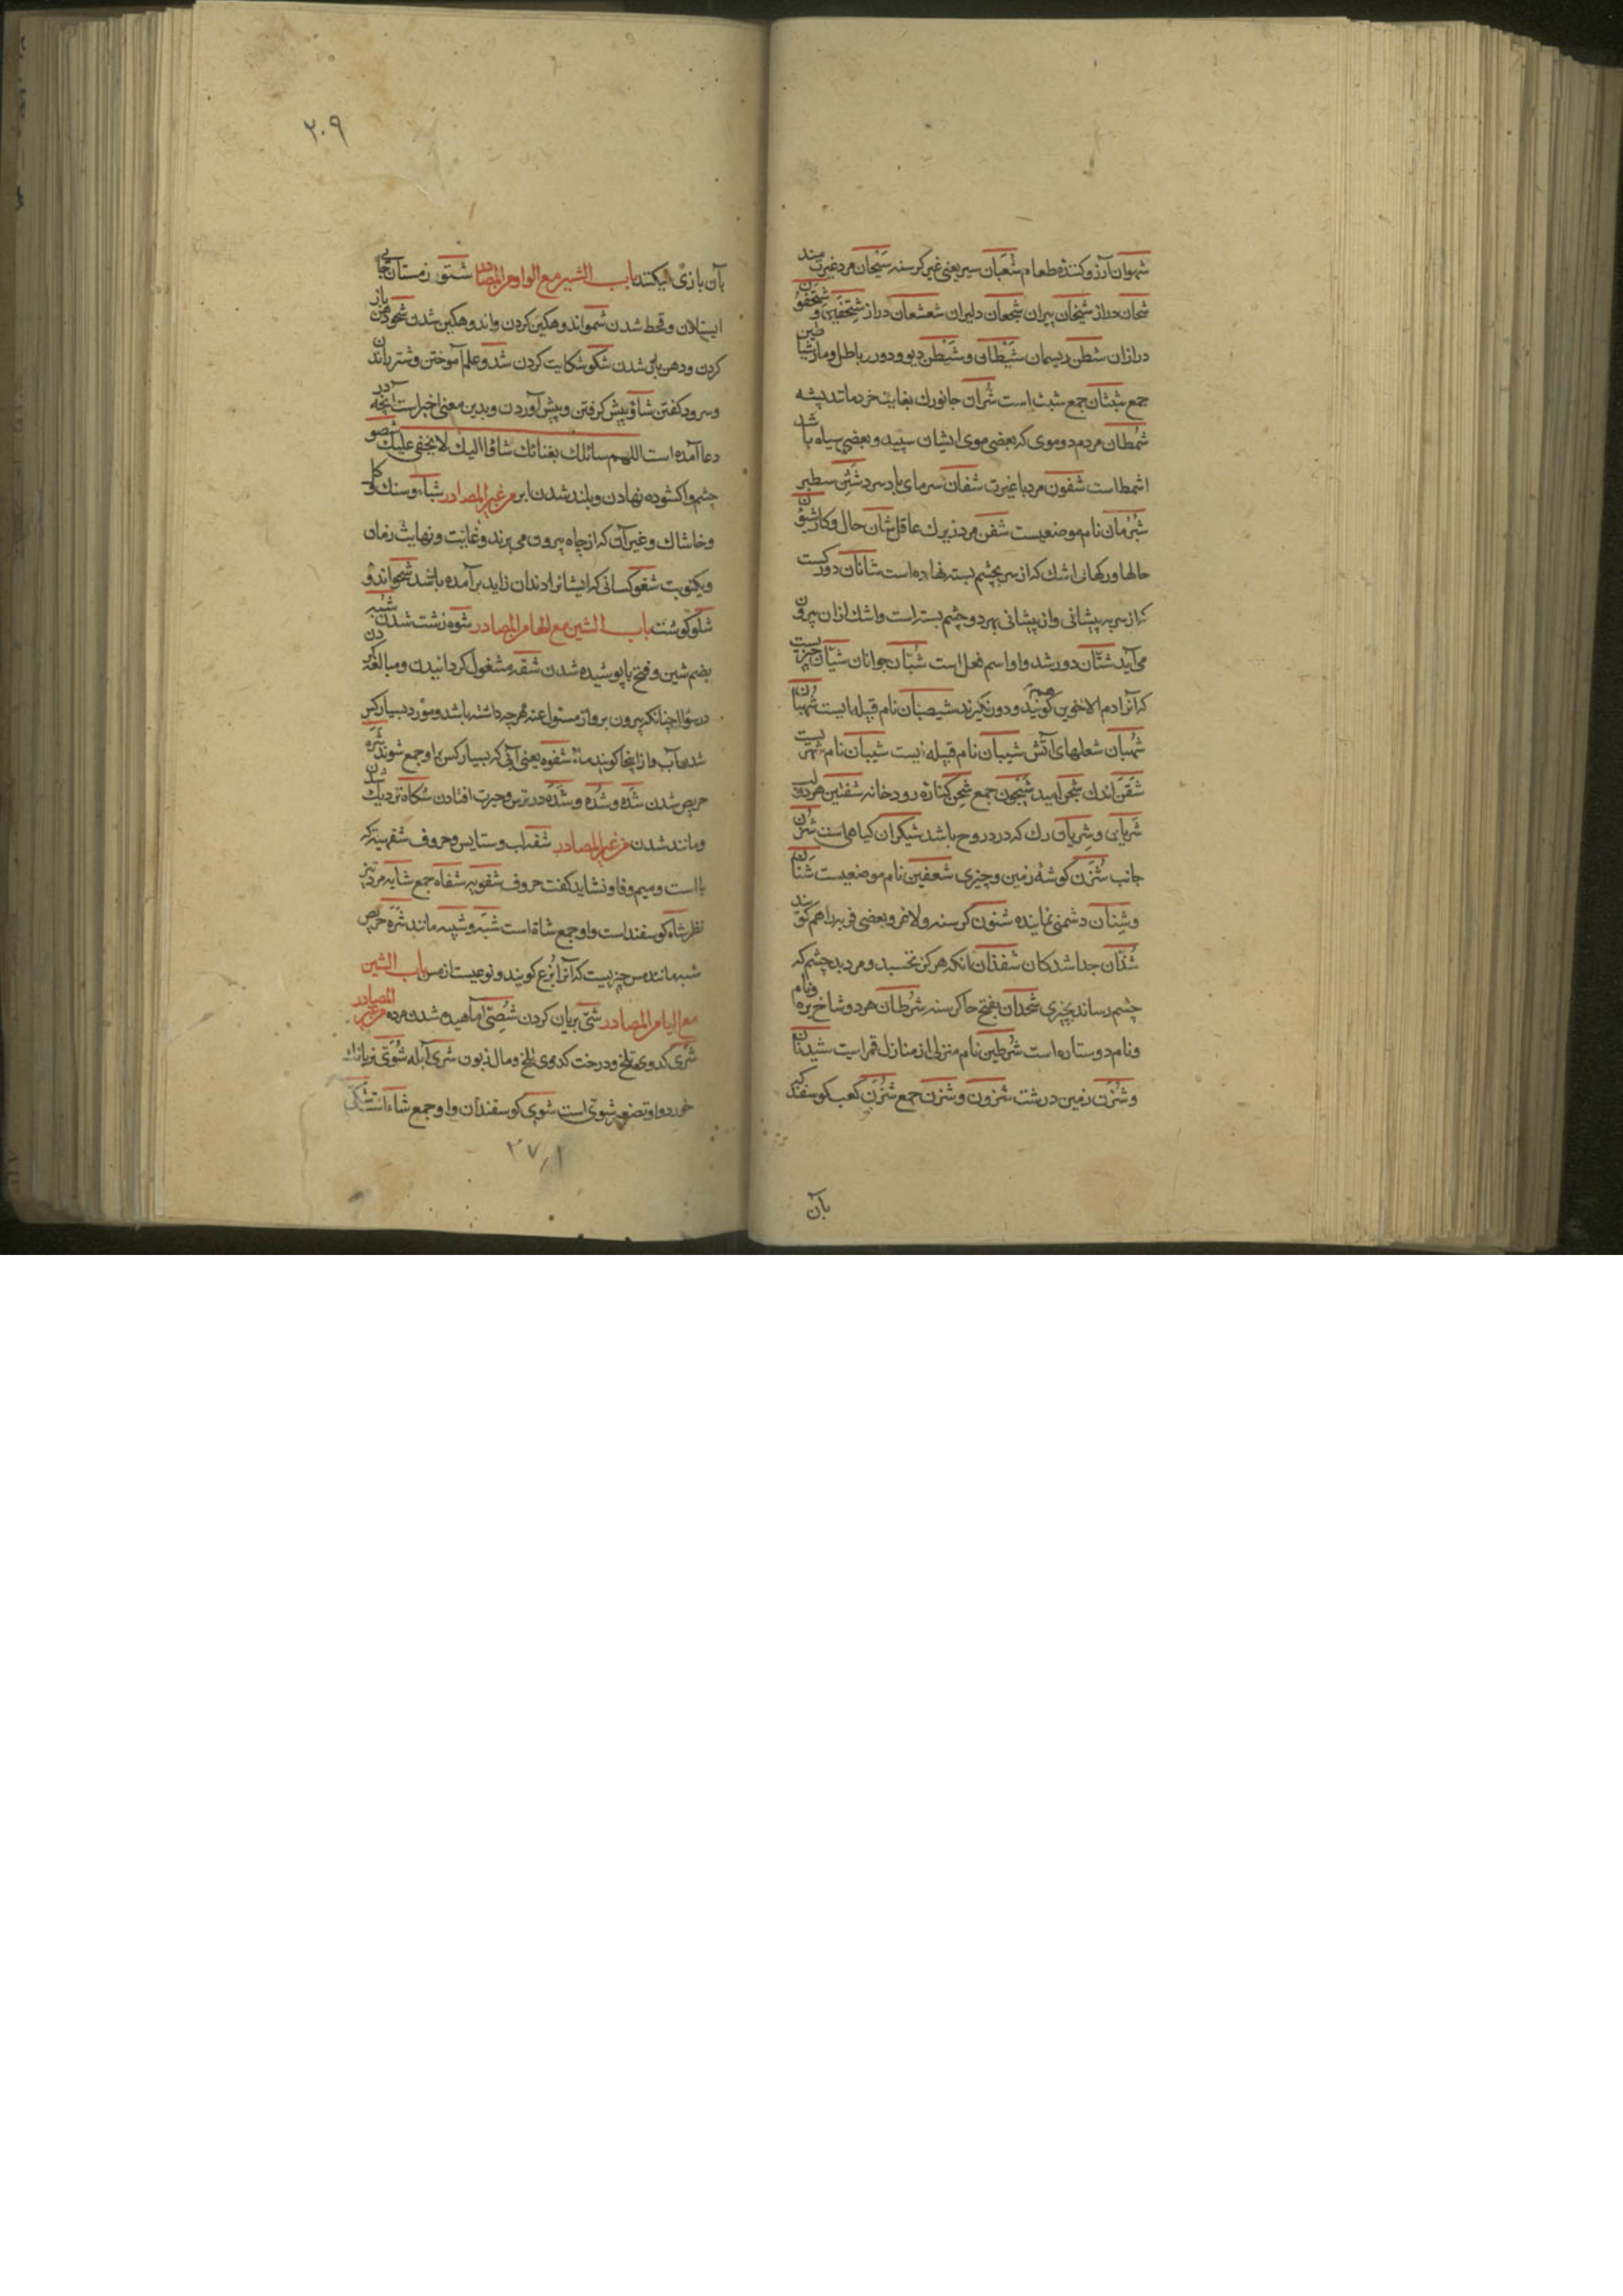 شهوان آرزو كنندهٔ طعام شبعان سير يعنى غير كرسنه شيحان مرد غيرت مند
شحان دراز شيخان پيران شجعان دليران شعشعان دراز
درازان شطن ريسمان شيطانى و شيطن ديو و دور در باطل و مار شياطين
جمع شبثان جمع شبث است شران جانورك بغايت خرد مانند پشه
شمطان مردم دو موى كه بعضى موى ايشان سپيد و بعضى سياه باشد
اشمط است شفون مرد با غيرت شفان سرماى باد سرد شثن سطبر
شبرمان نام موضعيست شفن مرد زيرك عاقل شان حال و كار شئون
حالها و ركهاى اشك كه از سر بچشم بسته نهاده است شانان دو ركست
كه از سر به پيشانى و از پيشانى بهر دو چشم بسته است و اشك از ان بيرون
مى آيد شتان دور شد و او اسم فعل است شبان جوانان شيان چيزيست
كه آنرا دم الاخوين گويند شيصبان نام قبيله ايست شهبان
شهبان شعلهاى آتش شيبان نام قبيله ايست شيبان نام شهريست
شقن اندك شجن اميد شجون جمع شجن كنارهٔ رودخانه شفتين هر دو لب
شريان و شريان رك كه در و روح باشد شيكران كياهى است شزن
جانب شزن كوشهٔ زمين و چيزى شعفين نام موضعيست شنان
و شنان دشمنى نماينده شنون كرسنه و لاغر و بعضى فربه را هم كويند
شذان جدا شدكان شقذان انكه هركز نخسبد و مرد بد چشم كه
چشم رساند بچيزى شحذان بفتح حا كرسنه شرطان هر دو شاخ بره و نام
و نام دو ستاره است شرطين نام منزلى از منازل قمر است
و شزن زمين درشت شزون و شزن جمع شزن كعب كوسفند
بآن
٢٠٩
بآن بازى ميكنند باب الشين مع الواو من المصادر شتو زمستان بجايى
ايستادن و قحط شدن شجو اندوهكين كردن و اندوهكين شدن شحو دهن باز
كردن و دهن باز شدن شكو شكايت كردن شدو علم آموختن و شتر راندن
و سرود كفتن شاو پيش كرفتن و پيش آوردن و بدين معنى اخير است آنچه در
دعا آمده است اللهم سائلك بفنائك شاقا اليك لا يخفى عليك شصو
چشم واكشوده نهادن و بلند شدن ابر من غير المصادر شاو
و خاشاك و غير آن كه از چاه بيرون مى برند و غايت و نهايت زمان
و يكنوبت شغو كسانى كه ايشانرا دندان زايد بر آمده باشد شجو اندوه
شلو كوشت باب الشين مع الها من المصادر شوه زشت شدن شبه
بضم شين و فتح با پوشيده شدن شقه مشغول كردانيدن و مبالغه كردن
در سوال چنانكه بيرون برد از مسئول عنه هر چه داشته باشد و مورد بسيار كس
شدن آب و از اينجا كويند ماء شفوه يعنى آبى كه بسيار كس برا و جمع شوند شره
حريص شدن شده و شده و شده در ترس و حيرت افتادن شكاه نزديك شدن
و مانند شدن من غير المصادر شفه لب و ستايس و حروف شفهيه كه
با است و ميم و فا و نشايد كفت حروف شفويه شفاه جمع شايه مرد تيز
نظر شاه كوسفند است و او جمع شاة است شبه و شبيه مانند شره حريص
شبه مانند مس چيزيست كه آنرا برنج كويند و نوعيست از مس باب الشين
مع اليا من المصادر شى بريان كردن شصى آماهيده شدن مرده من غير المصادر
شرى كدوى تلخ و درخت كدوى تلخ و مال زبون شرى آبله شوى
خورد و او تصغير شوى است شوى كوسفندان و او جمع شاء است
٢٧١